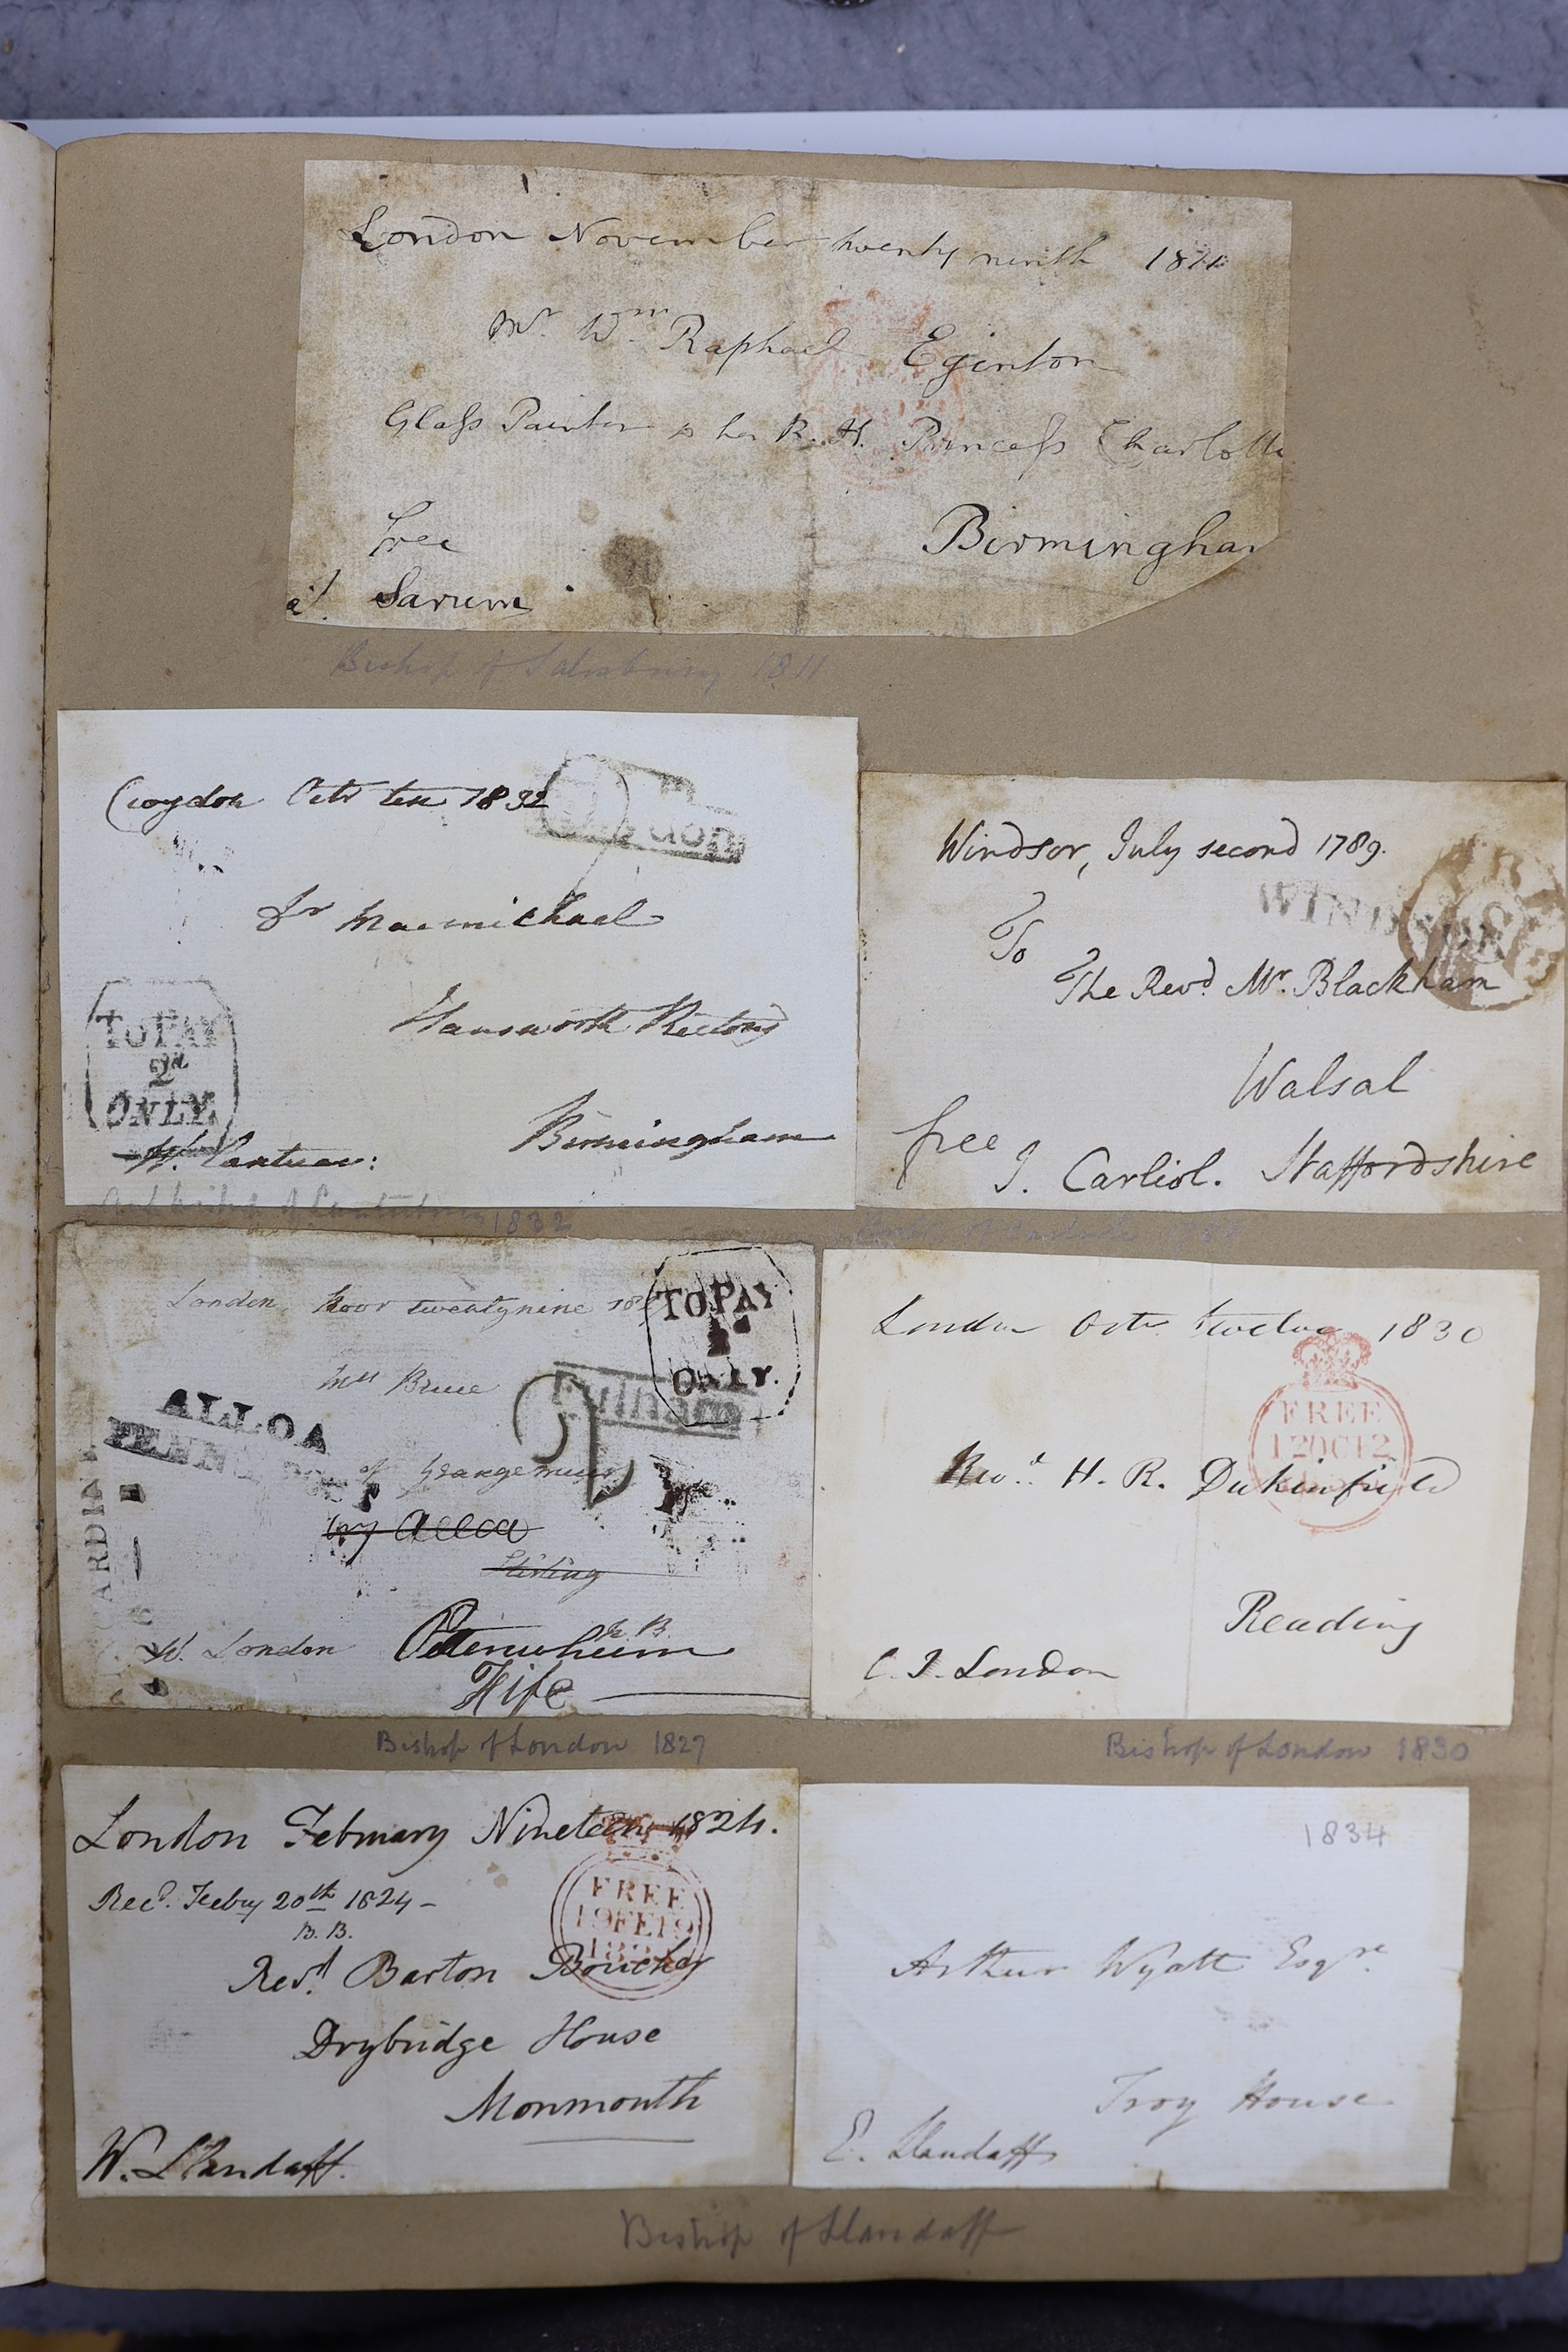 London November twenty ninth 1811
Mr. Wm Raphael Eginton
Glass Painter to her R. H. Princess Charlotte
Birmingham
Free
Sarum
Bishop of Salisbury 1811
Croydon Octr ten 1832
Dr Macmichael
Rectory
Birmingham
TO PAY
2d
ONLY.
W. Cantuar:
Archbishop of Canterbury 1832
Windsor, July second 1789.
WINDSOR
To
The Revd. Mr. Blackham
Walsal
Staffordshire
free
J. Carliol.
Bishop of Carlisle
London Novr twentynine
TO PAY
ONLY.
Mrs Bruce
Fulham
ALLOA
PENNY POST
of Grangemuir
by Alloa
Stirling
N. B.
W. London
Pittenweem
Fife
Bishop of London 1827
London Octr. twelve 1830
FREE
12OC12
Revd. H. R. Dukinfield
Reading
C. J. London
Bishop of London 1830
London February Nineteen 1824.
Recd. Feby 20th 1824 -
B. B.
FREE
19FE19
Revd. Barton Boucher
Drybridge House
Monmouth
W. Llandaff.
1834
Arthur Wyatt Esqre.
Troy House
E. Llandaff
Bishop of Llandaff